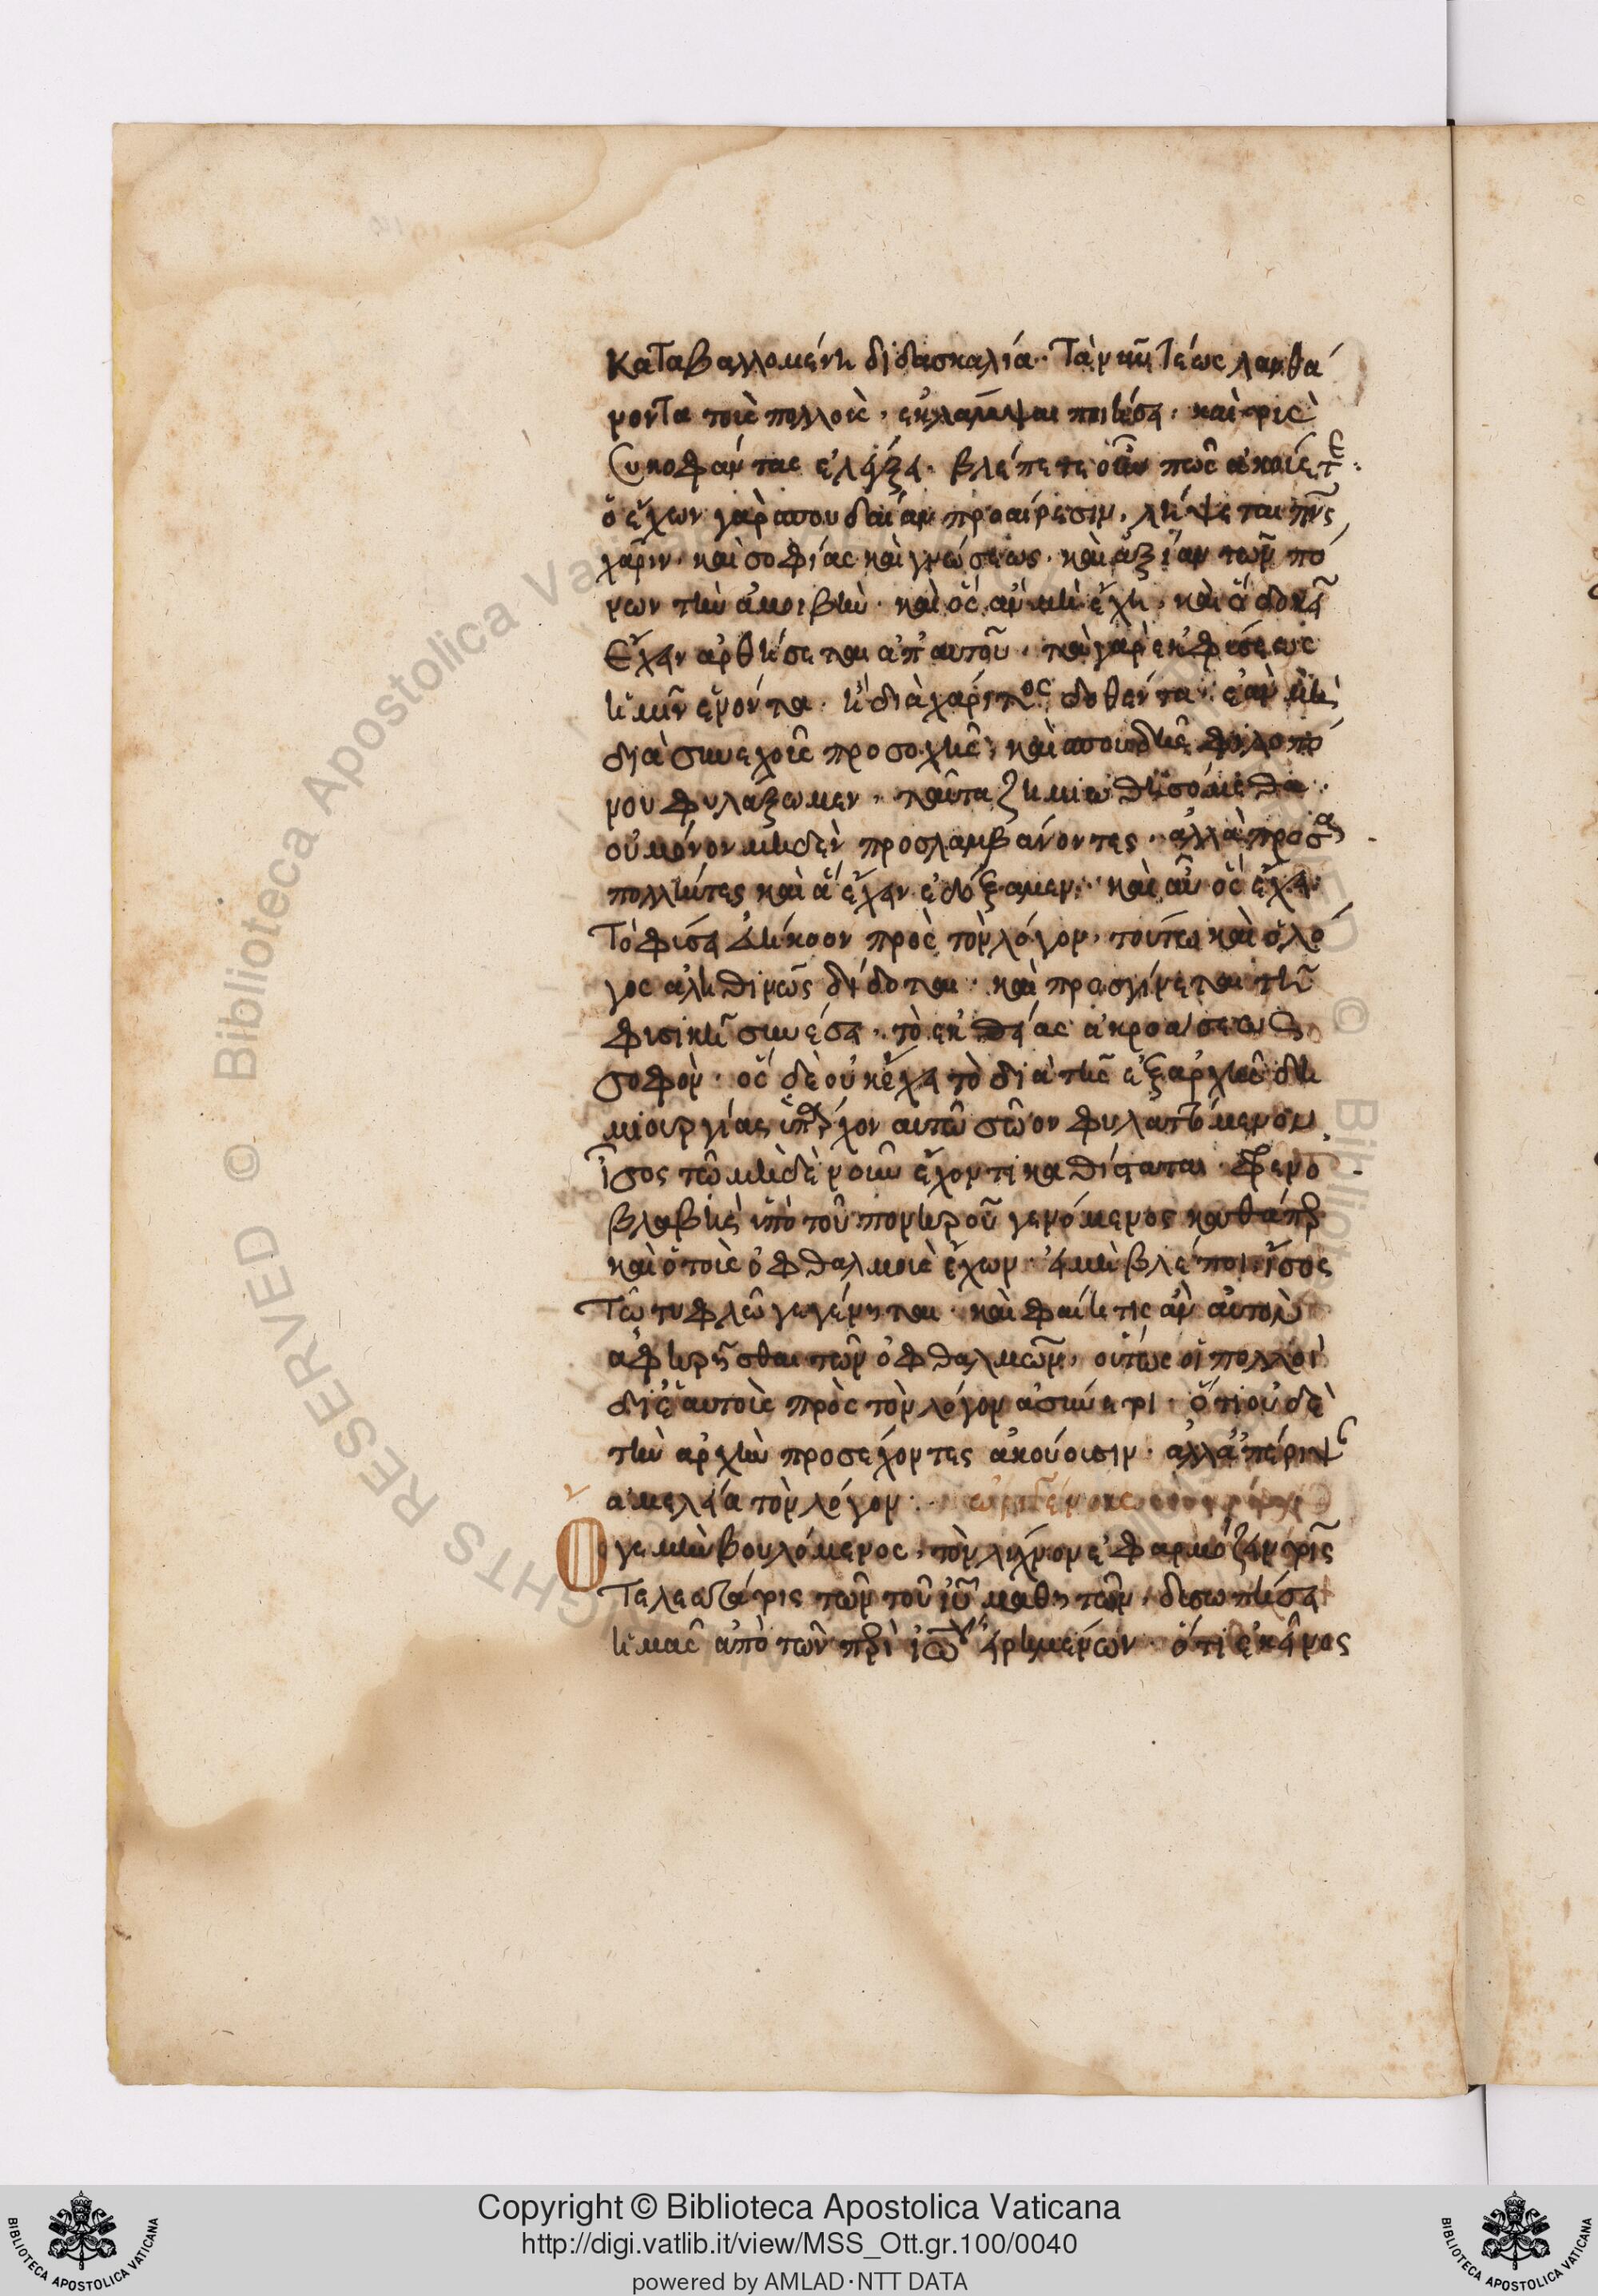 καταβαλλομένη διδασκαλία· τὰ νῦν τέως λανθά
νοντα τοῖς πολλοῖς, ἐκλάμψαι ποιήσει, καὶ τοὺς
συκοφάντας ἐλέγξει. βλέπετε οὖν πῶς ἀκούετε:
ὁ ἔχων γὰρ σπουδαίαν προαίρεσιν, λήψεται πνς
χάριν, καὶ σοφίας καὶ γνώσεως, καὶ ἀξίαν τῶν πό
νων τὴν ἀμοιβήν. καὶ ὃς ἂν μὴ ἔχη, καὶ ὃ δοκεῖ
ἔχειν ἀρθήσεται ἀπ' αὐτοῦ. τὰ γὰρ ἐκ φύσεως
ἡμῖν ἐνόντα, ἢ διὰ χάριτος δοθέντα, ἐὰν μὴ
διὰ συνεχοῦς προσοχῆς, καὶ σπουδῆς φιλοπό
νου φυλάξωμεν, ταῦτα ζημιωθησόμεθα.
οὐ μόνον μηδὲν προσλαμβάνοντες, ἀλλὰ προσα
πολλύντες καὶ ἃ ἔχειν ἐδόξαμεν. καὶ αὖ ὃς ἔχει
τὸ φύσει διήκοον πρὸς τὸν λόγον, τούτω καὶ ὁ λό
γος ἀληθινῶς δίδοται. καὶ προσγίνεται τῆ
φυσικῆ συνέσει, τὸ ἐκ θείας ἀκροάσεως
σοφόν. ὃς δὲ οὐκ ἔχει τὸ διὰ τῆς ἐξαρχῆς δη
μιουργίας ὑπάρχον αὐτῶ σῶον φυλαττόμενον,
ἴσος τῶ μηδὲ νοῦν ἔχοντι καθίσταται. φρενο
βλαβὴς ὑπὸ τοῦ πονηροῦ γενόμενος καθάπερ
καὶ ὁ τοὺς ὀφθαλμοὺς ἔχων, εἰ μὴ βλέποι, ἴσος
τῶ τυφλῶ γεγένηται. καὶ φαίη τις ἂν αὐτὸν
ἀφηρῆσθαι τῶν ὀφθαλμῶν, οὕτως οἱ πολλοὶ
δι' ἑαυτοὺς πρὸς τὸν λόγον ἀσύνετοι. ὅτι οὐδὲ
τὴν ἀρχὴν προσέχοντες ἀκούουσιν. ἀλλ'
ἀμελεία τὸν λόγον.
Ὅ γε μὴν βουλόμενος, τὸν λύχνον ἐφαρμόζειν τοῖς
τελεωτάτοις τῶν τοῦ ιυ μαθητῶν, δυσωπήσει
ἡμᾶς ἀπὸ τῶν περὶ ἰωάννου εἰρημένων. ὅτι ἐκεῖνος
Copyright © Biblioteca Apostolica Vaticana
http://digi.vatlib.it/view/MSS_Ott.gr.100/0040
powered by AMLAD·NTT DATA